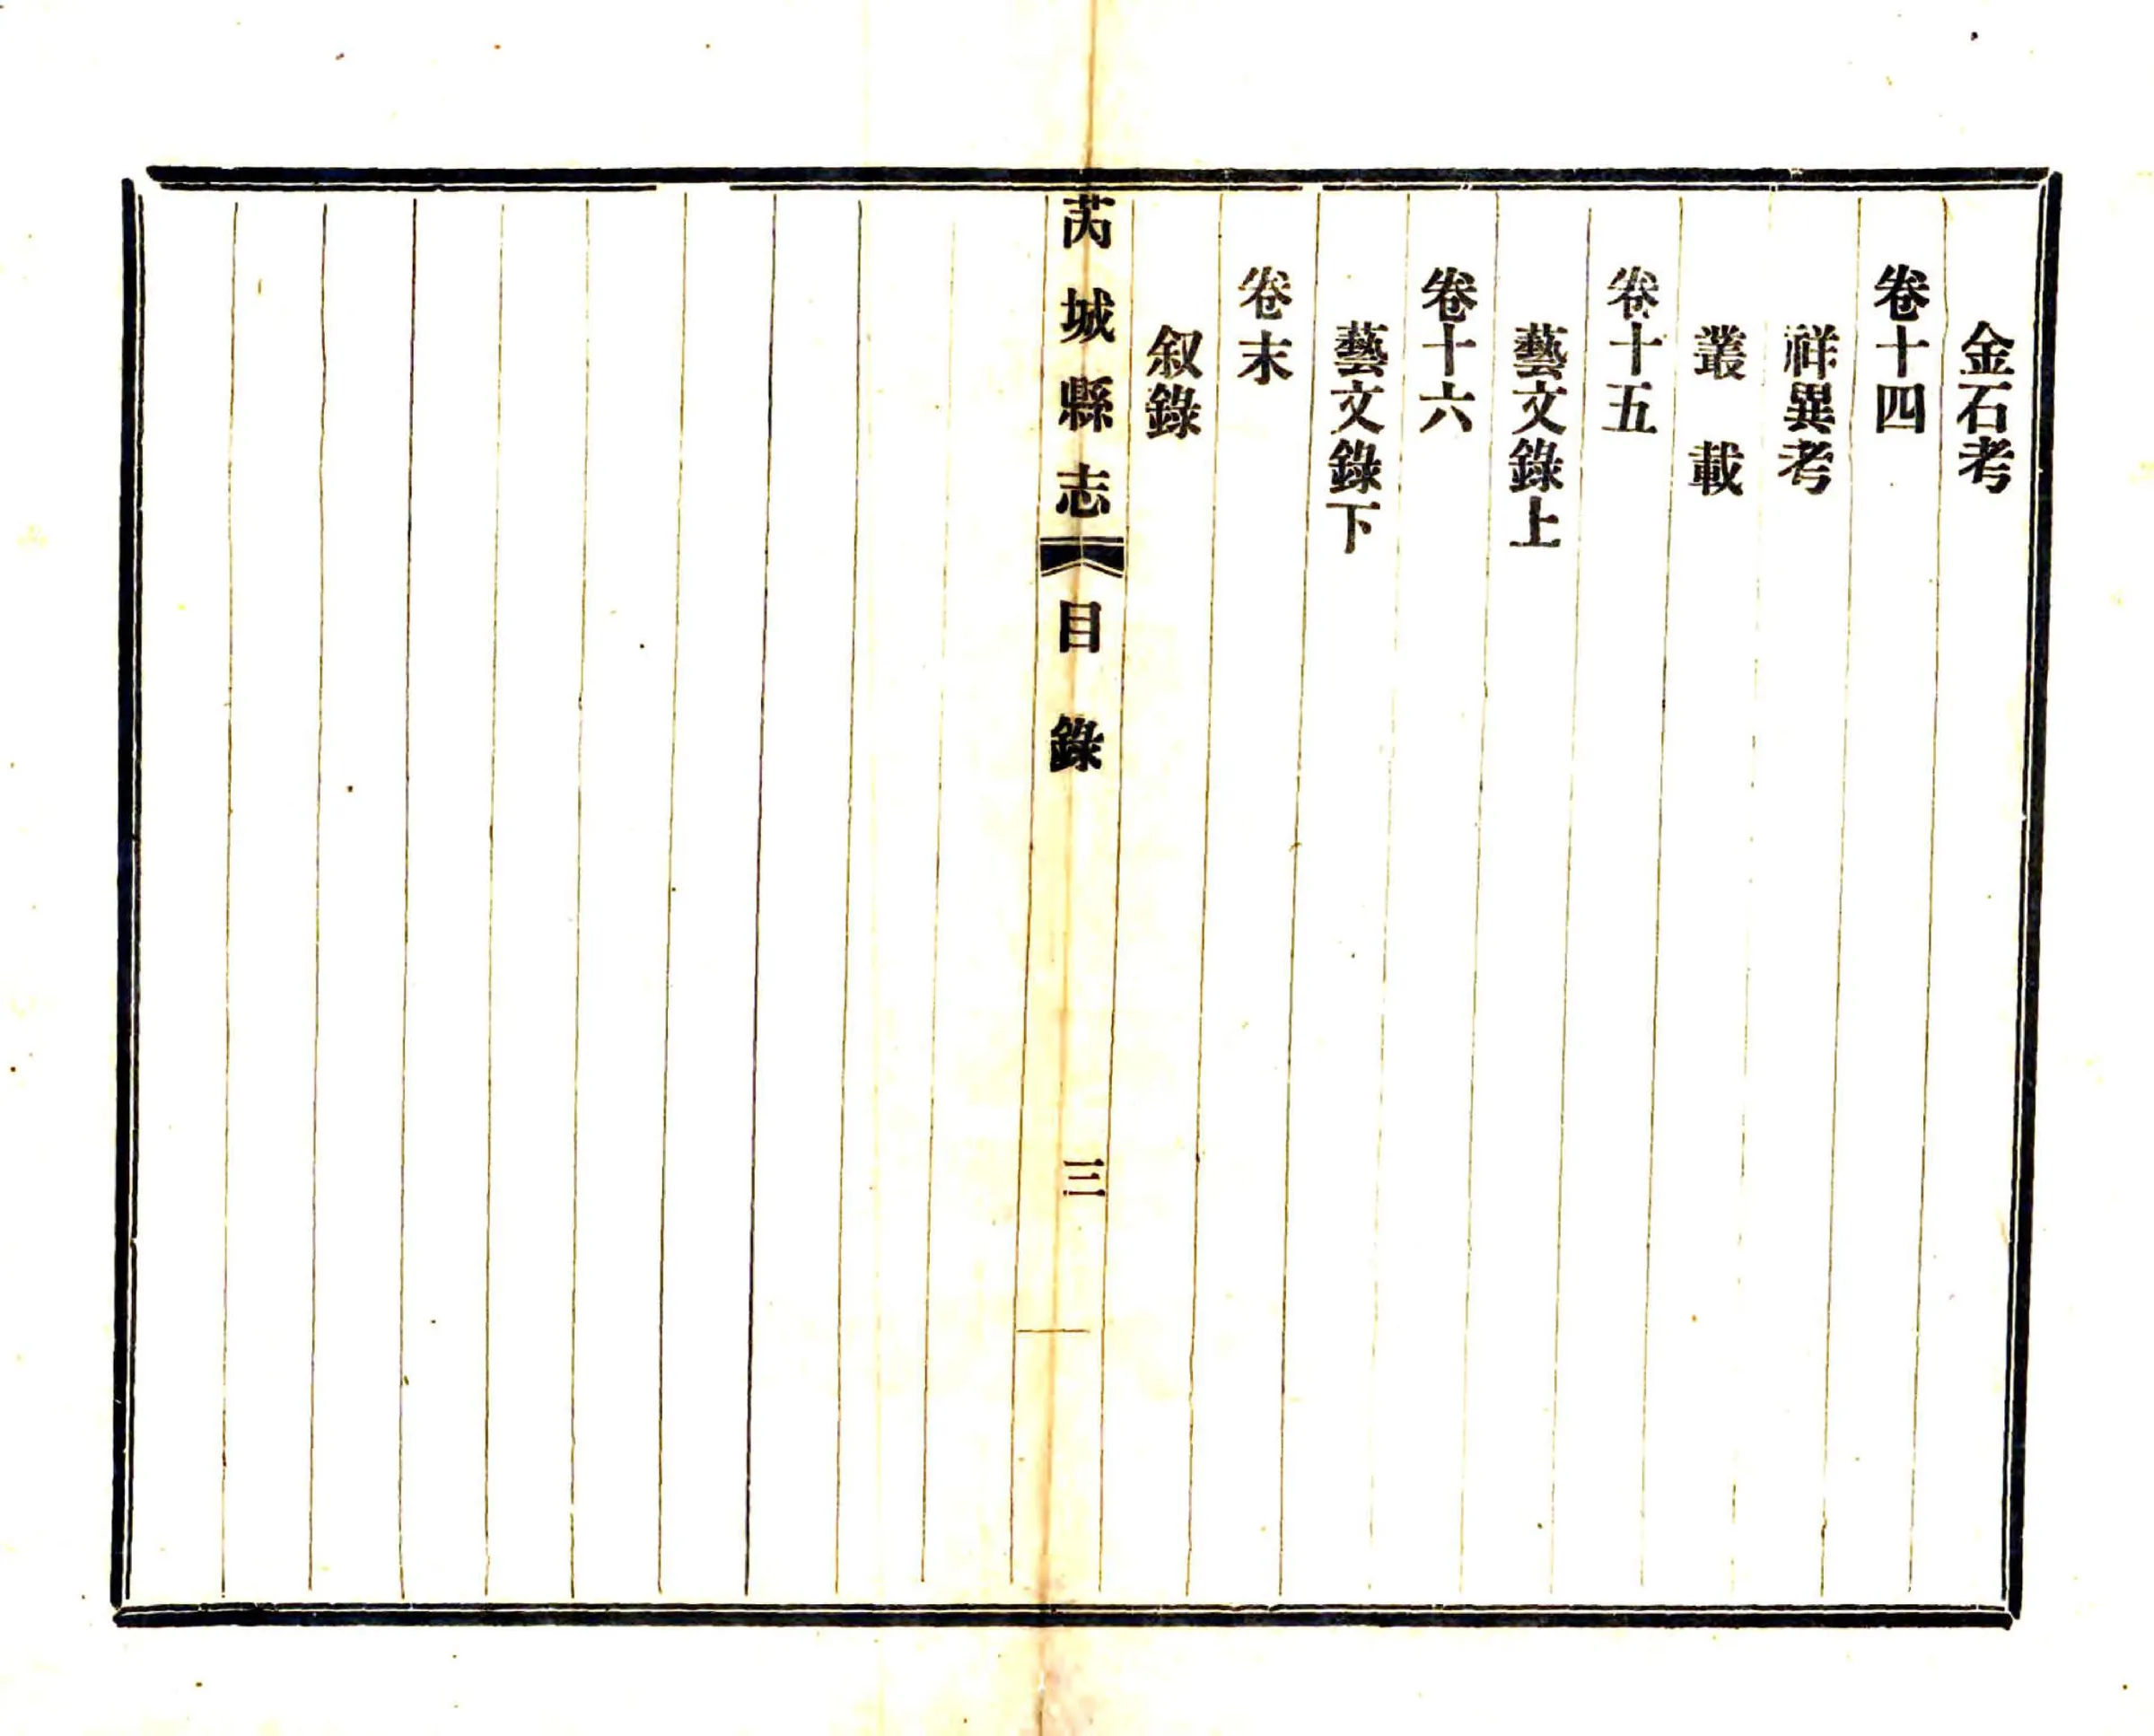 金石考
卷十四
祥異考
叢載
卷十五
藝文錄上
卷十六
藝文錄下
卷末
叙錄
芮城縣志
目錄
三